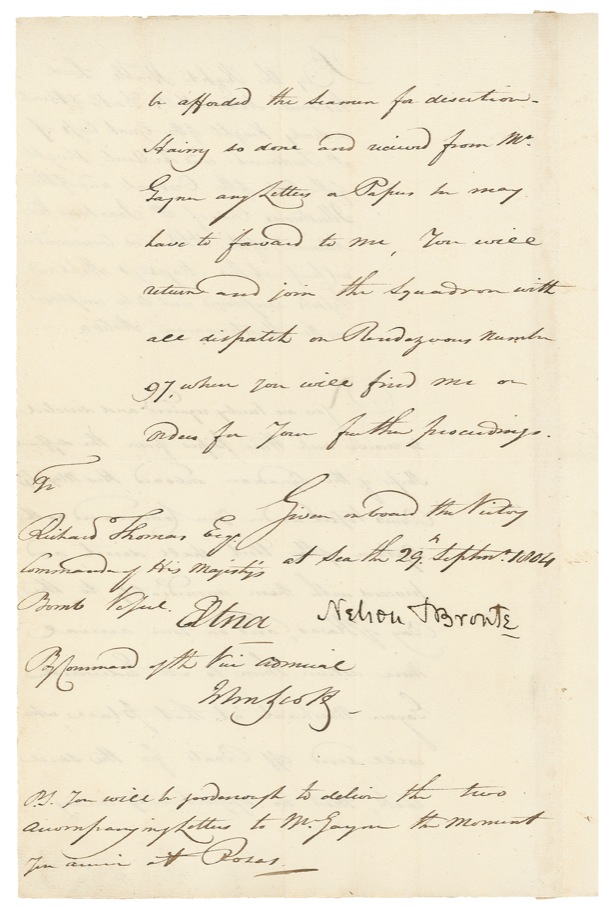 be afforded the Seamen for desertion —
Having so done and received from Mr.
Gayner any Letters or Papers he may
have to forward to me, You will
return and join the Squadron with
all dispatch on Rendezvous Number
97, where you will find me or
orders for Your further proceedings.
To
Given on board the Victory
Richard Thomas Esqr.
at Sea the 29th Septemr. 1804
Commander of His Majesty's
Bomb Vessel Etna
Nelson & Bronte
By Command of the Vice Admiral
John Scott
P.S. You will be good enough to deliver the two
accompanying Letters to Mr. Gayner the moment
You arrive at Rosas